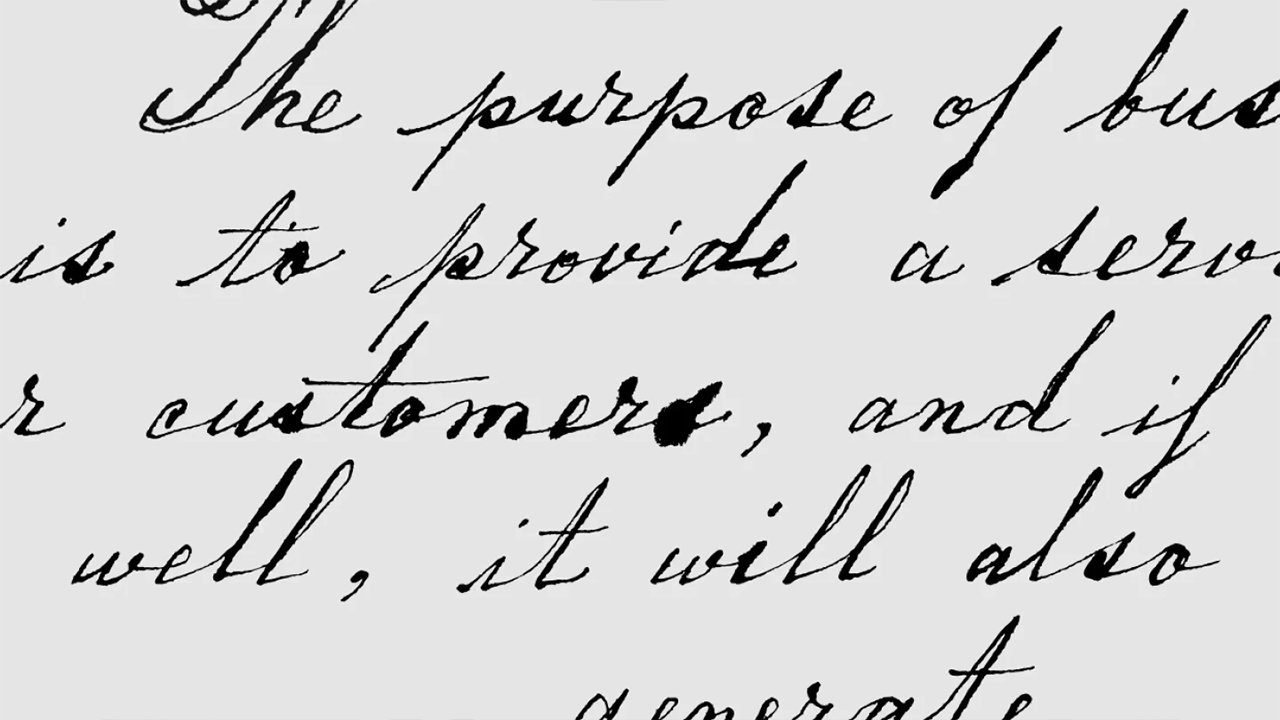 The purpose of bus
is to provide a serv
r customers, and if
well, it will also
generate